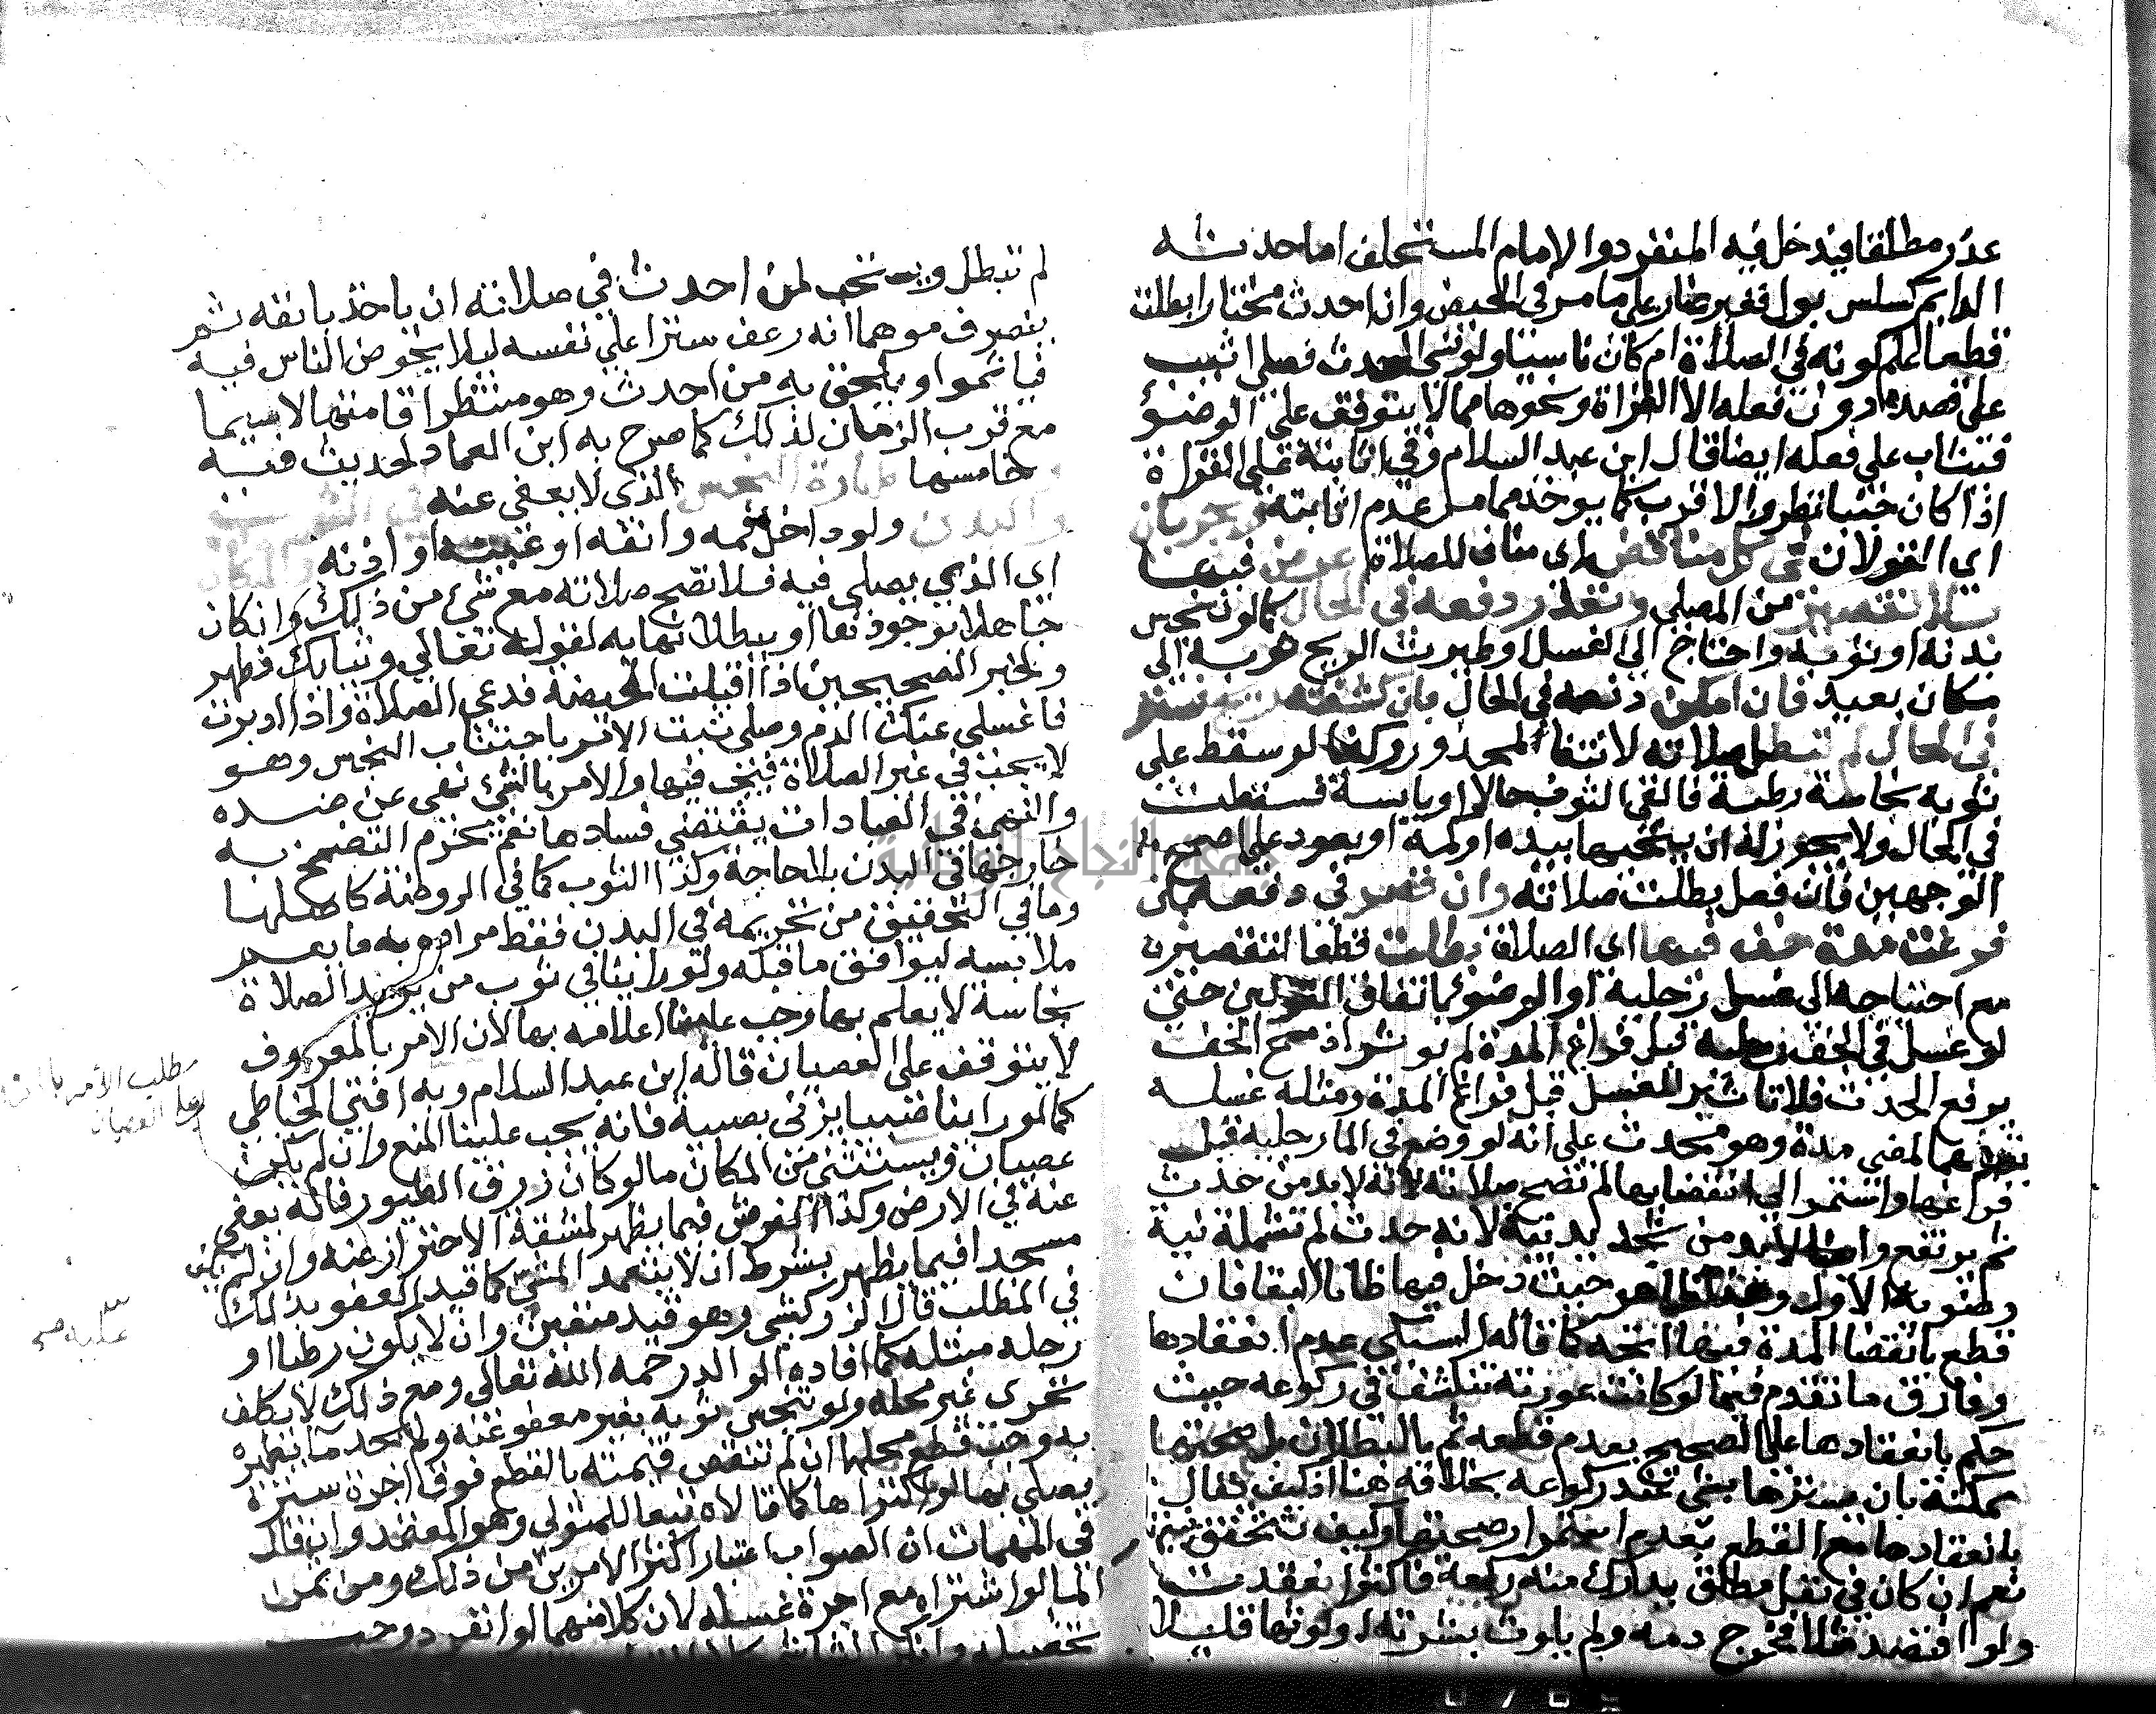 عذر مطلقا فيدخل فيه المنفرد والامام المستخلف اما حدثه
الدايم كسلس بول فغير ضار على ما مر في الحيض وان احدث مختارا بطلت
قطعا اعلم كونه في الصلاة ام كان ناسيا ولو نسي الحدث فصلى اثيب
على قصده دون فعله الا القراة ونحوها مما لا يتوقف على الوضوء
فيثاب على فعله ايضا قال ابن عبد السلام وفي اثابته على القراة
اذا كان جنبا نظر والاقرب كما يوخذ مما مر عدم اثابته ويجريان
اي القولان في كل مناقض اي مناف للصلاة عرض فيها
بلا تقصير من المصلي وتعذر دفعه في الحال كما لو تنجس
بدنه او ثوبه واحتاج الى الغسل او طيرت الريح ثوبه الى
مكان بعيد فان امكن دفعه في الحال بان كشفته ريح فستر
في الحال لم تبطل صلاته لانتفا المحذور وكذا لو سقط على
ثوبه نجاسة رطبة فالقى الثوب حالا او يابسة فسقطت
في الحال ولا يجوز له ان ينحيها بيده او كمه او بعود على اصح
الوجهين فان فعل بطلت صلاته وان قصر في دفعه بان
فرغت مدة خف فيها اي الصلاة بطلت قطعا لتقصيره
مع احتياجه الى غسل رجليه او الوضوء باتفاق القولين حتى
لو غسل في الخف رجليه قبل فراغ المدة لم يوثر اذ مسح الخف
يرفع الحدث فلا تاثير للغسل قبل فراغ المدة ومثله غسله
بعدها لمضي مدة وهو محدث على انه لو وضع في الما رجليه قبل
فراغها واستمر الى انقضايها لم تصح صلاته لانه لا بد من حدث
ثم يرتفع وايضا لا بد من تجديد نية لانه حدث لم تشمله نية
وضوءه الاول وهذا ظاهر حيث دخل فيها ظانا البقا فان
قطع بانقضا المدة فيها اتجه كما قاله السبكي عدم انعقادها
وفارق ما تقدم فيما لو كانت عورته تنكشف في ركوعه حيث
حكم بانعقادها على الصحيح بعدم قطعه ثم بالبطلان بل صحتها
ممكنة بان يسترها بشي عند ركوعه بخلافه هنا اذ كيف يقال
بانعقادها مع القطع بعدم استمرار صحتها وكيف تتحقق نيتها
نعم ان كان في نفل مطلق يدرك منه ركعة فاكثر انعقدت
ولو افتصد مثلا فخرج دمه ولم يلوث بشرته او لوثها قليلا
لم تبطل ويستحب لمن احدث في صلاته ان ياخذ بانفه ثم
ينصرف موهما انه رعف سترا على نفسه ليلا يخوض الناس فيه
فياثموا ويلحق به من احدث وهو منتظر اقامتها لا سيما
مع قرب الزمان لذلك كما صرح به ابن العماد لحديث فيه
خامسها طهارة النجس الذي لا يعفى عنه في الثوب
والبدن ولو داخل فمه وانفه او عينه او اذنه والمكان
اي الذي يصلي فيه فلا تصح صلاته مع شيء من ذلك وان كان
جاهلا بوجودها او ببطلانها به لقوله تعالى وثيابك فطهر
ولخبر الصحيحين اذا اقبلت الحيضة فدعي الصلاة واذا ادبرت
فاغسلي عنك الدم وصلي ثبت الامر باجتناب النجس وهو
لا يجب في غير الصلاة فيجب فيها والامر بالشيء نهي عن ضده
والنهي في العبادات يقتضي فسادها نعم يحرم التضمخ به
خارجها في البدن بلا حاجة وكذا الثوب كما في الروضة كاصلها
وما في التحقيق من تحريمه في البدن فقط مراده به ما يعم
ملابسه ليوافق ما قبله ولو راينا في ثوب من يريد الصلاة
نجاسة لا يعلم بها وجب علينا اعلامه بها لان الامر بالمعروف
لا يتوقف على العصيان قاله ابن عبد السلام وبه افتى الحناطي
كما لو راينا صبيا يزني بصبية فانه يجب علينا المنع وان لم يكن
عصيان ويستثنى من المكان ما لو كان ذرق الطيور فانه يعفى
عنه في الارض وكذا الفرش فيما يظهر لمشقة الاحتراز عنه وان لم يكن
مسجدا فيما يظهر بشرط ان لا يتعمد المشي كما قيد العفو بذلك
في المطلب قال الزركشي وهو قيد متعين وان لا يكون رطبا او
رجله مبتلة كما افاده الوالد رحمه الله تعالى ومع ذلك لا يكلف
تحري غير محله ولو تنجس ثوبه بغير معفو عنه ولم يجد ما يطهره
به وجب قطع محلها ان لم تنقص قيمته بالقطع فوق اجرة سترة
يصلي بها لو اكتراها كما قالاه تبعا للمتولي وهو المعتمد وان قال
في المهمات ان الصواب اعتبار اكثر الامرين من ذلك ومن ثمن
الما لو اشتراه مع اجرة غسله لان كلا منهما لو انفرد وجب
تحصيله
مطلب الامر با
على العصيان
عليه صح
جامعة النجاح الوطنية